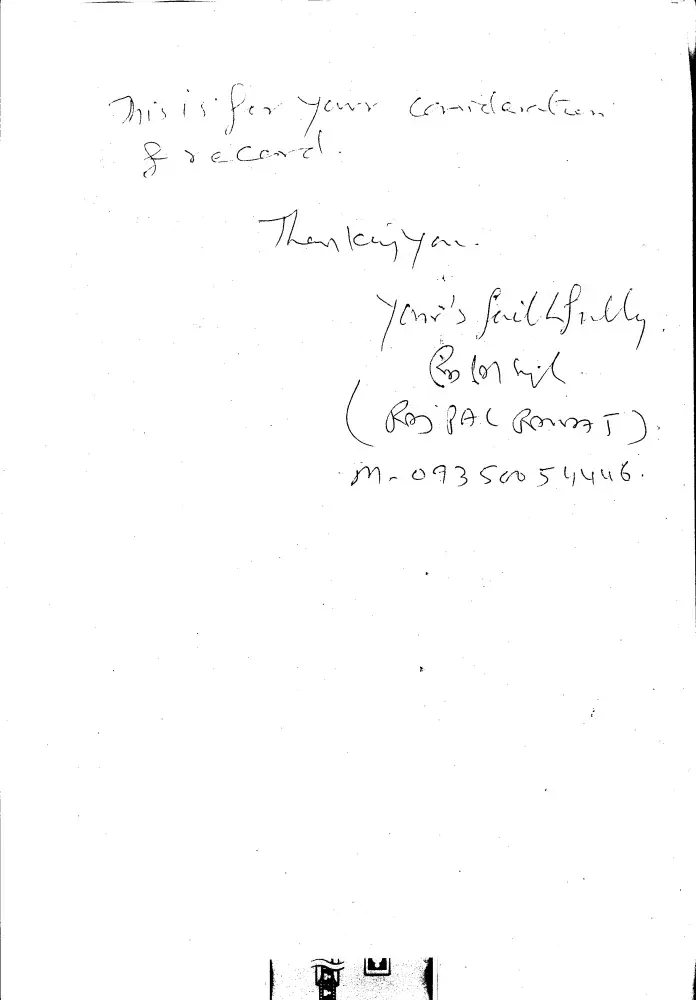 This is for your consideration
& record.
Thanking you.
Your's faithfully.
(RAJ PAL RAWAT).
M- 09350054446.